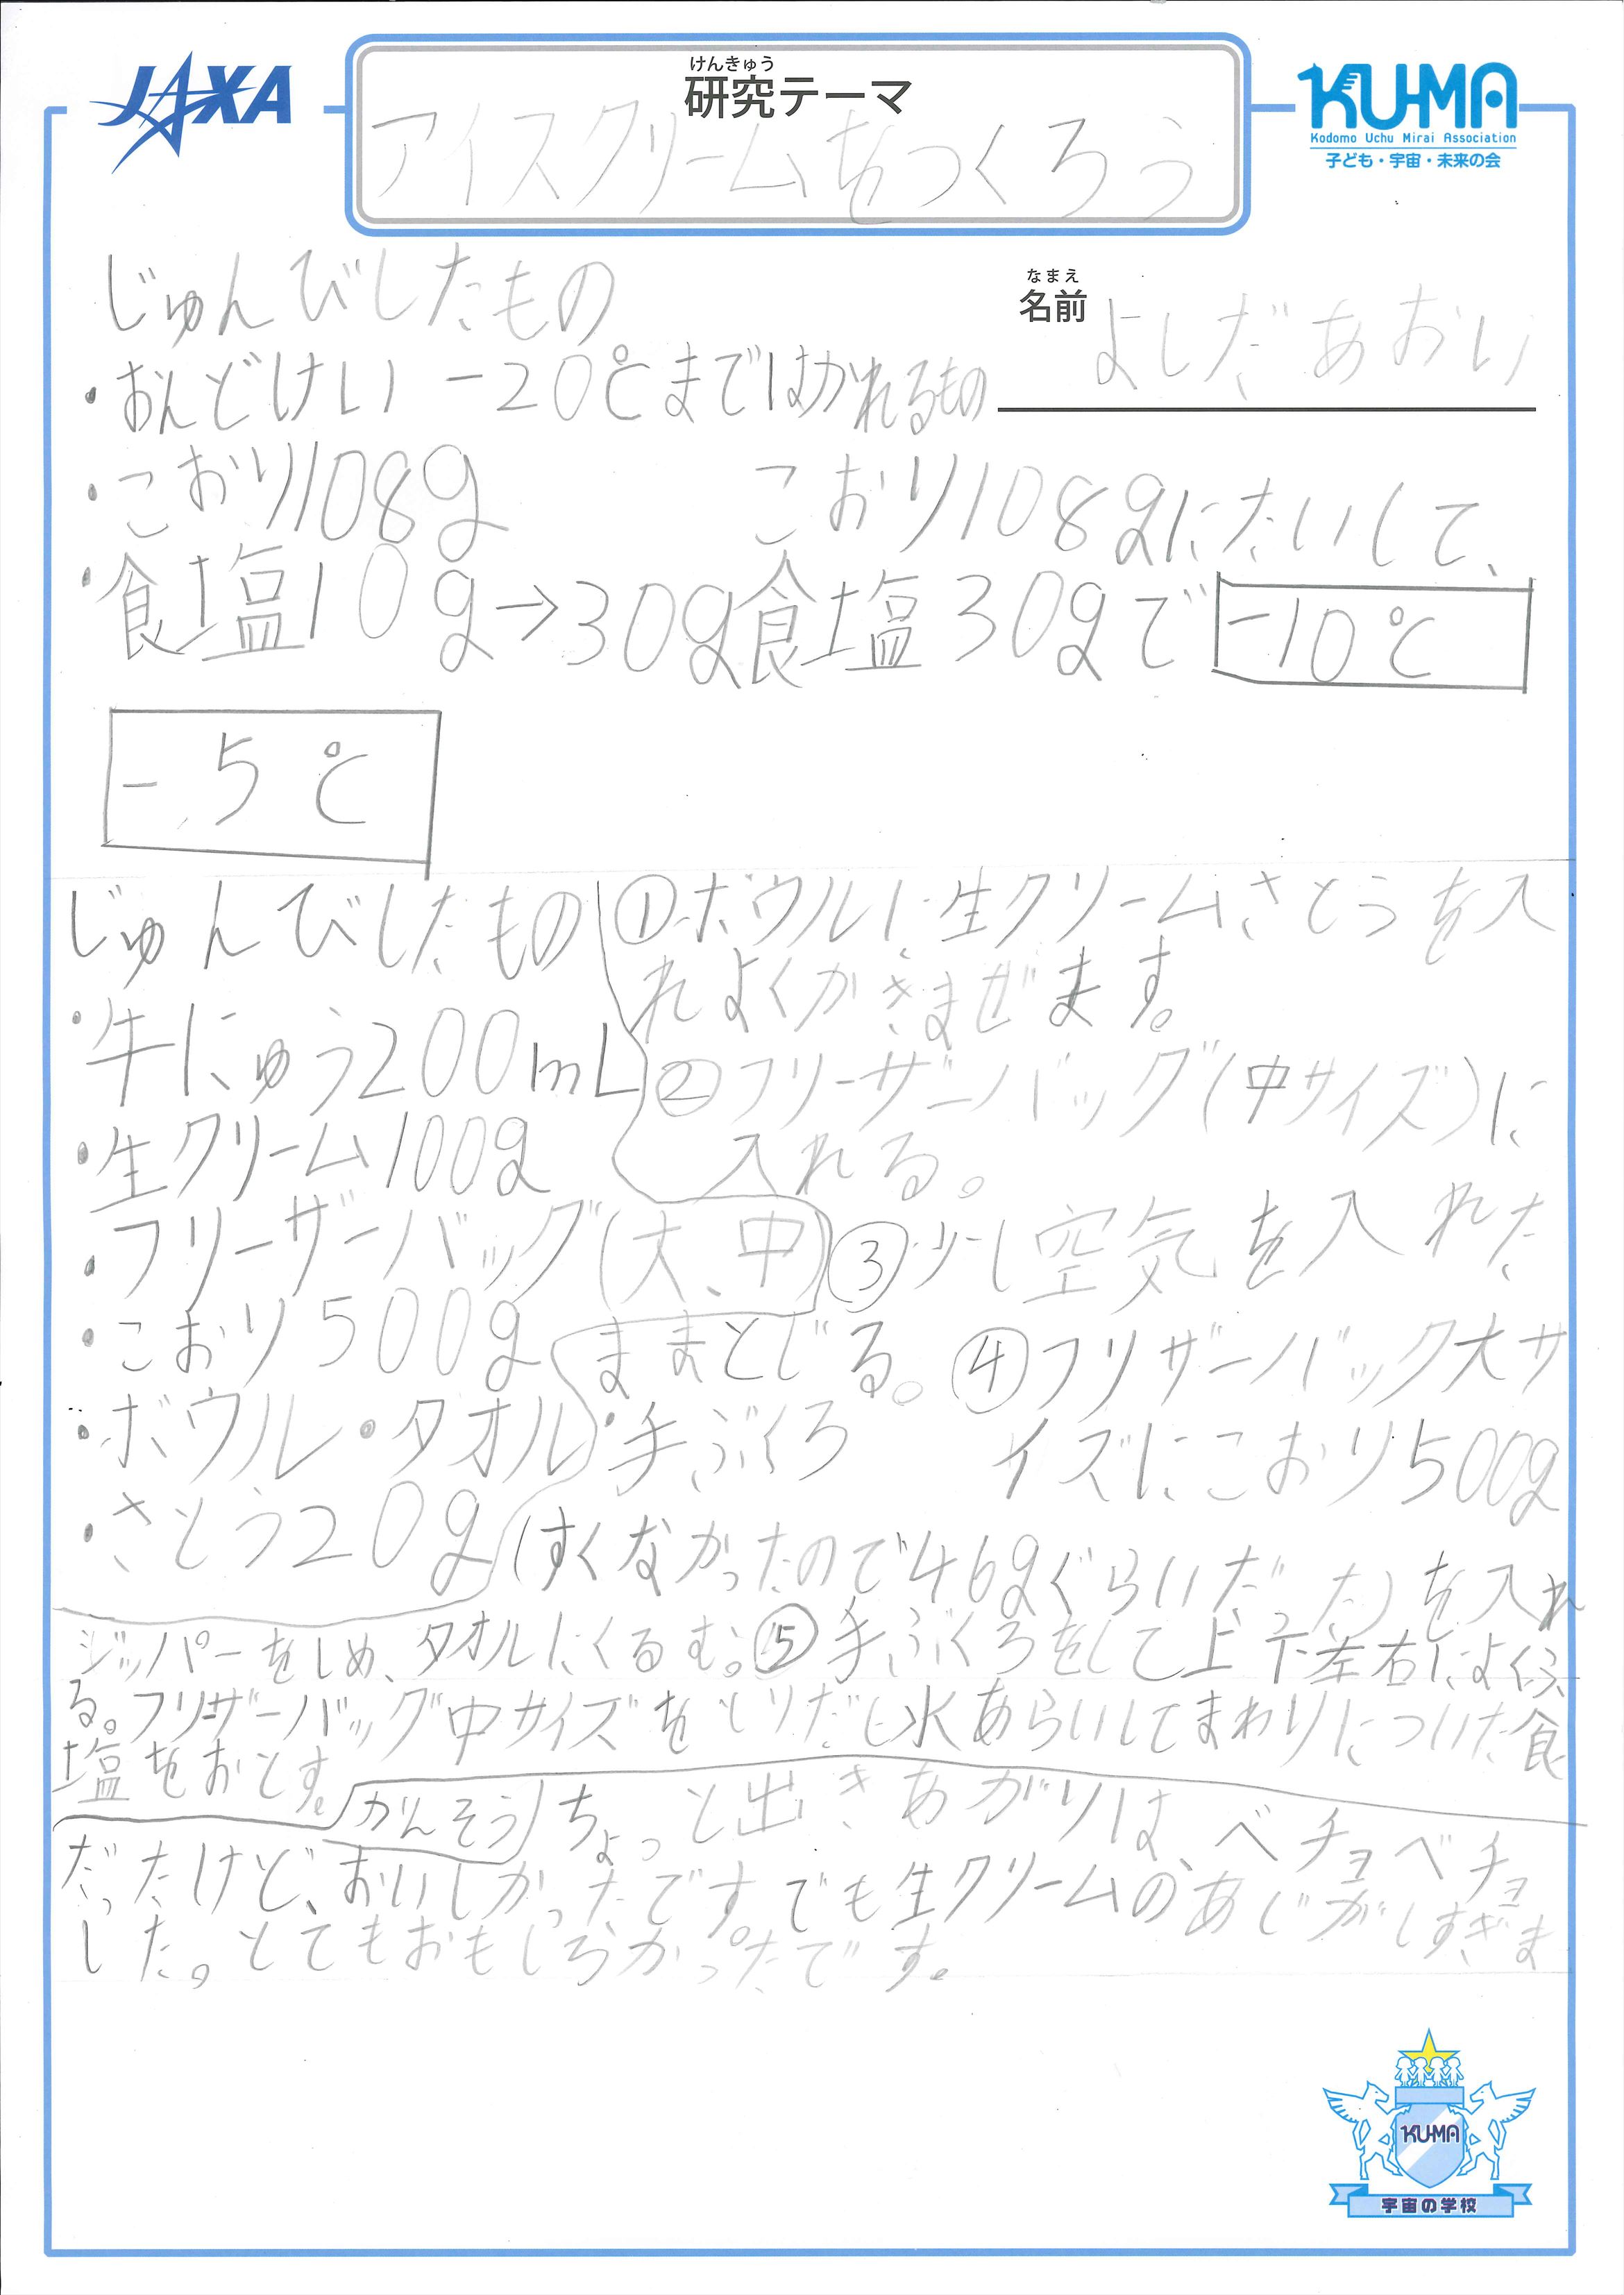 JAXA
けんきゅう
研究テーマ
アイスクリームをつくろう
KU-MA
Kodomo Uchu Mirai Association
子ども・宇宙・未来の会
じゅんびしたもの
なまえ
名前 よしだ あおい
・おんどけい -20℃まではかれるもの
・こおり108g
・食塩10g→30g
こおり108gにたいして、
食塩30gで -10℃
-5℃
じゅんびしたもの
・牛にゅう200mL
・生クリーム100g
・フリーザーバッグ(大、中)
・こおり500g
・ボウル・タオル・手ぶくろ
・さとう20g
①ボウルに生クリームさとうを入
れよくかきまぜます。
②フリーザーバッグ(中サイズ)に
入れる。
③少し空気を入れた
ままとじる。④フリザーバック大サ
イズにこおり500g
(すくなかったので46gぐらいだった)を入れ
ジッパーをしめ、タオルにくるむ。⑤手ぶくろをして上下左右によくふ
る。フリザーバッグ中サイズをとりだし水あらいしてまわりについた食
塩をおとす。
かんそう ちょっと出きあがりは、ベチョベチョ
だったけど、おいしかったです。でも生クリームのあじがしすぎま
した。とてもおもしろかったです。
KU-MA
宇宙の学校